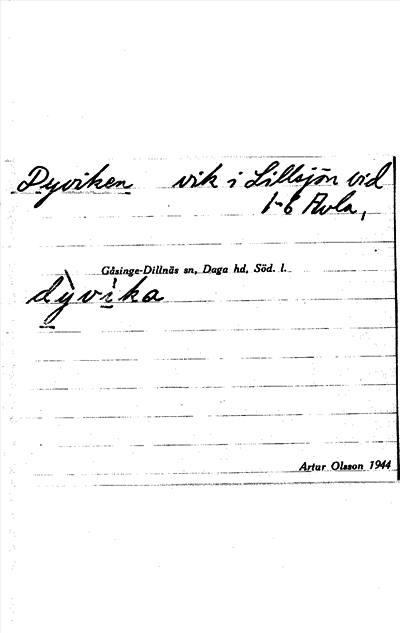 Dyviken vik i Lillsjön vid
1-6 Avla,
Gåsinge-Dillnäs sn, Daga hd, Söd. l.
dỳvìka
Artur Olsson 1944